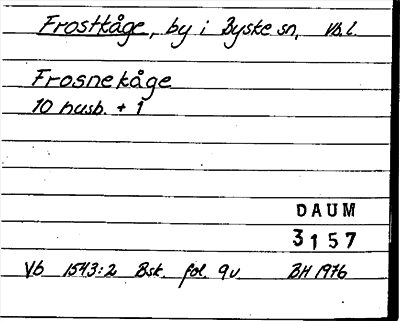 Frostkåge, by i Byske sn, Vb.l.
Frosnekåge
10 husb. + 1
DAUM
3157
Vb 1543:2 Bsk. fol. 9v BH 1976